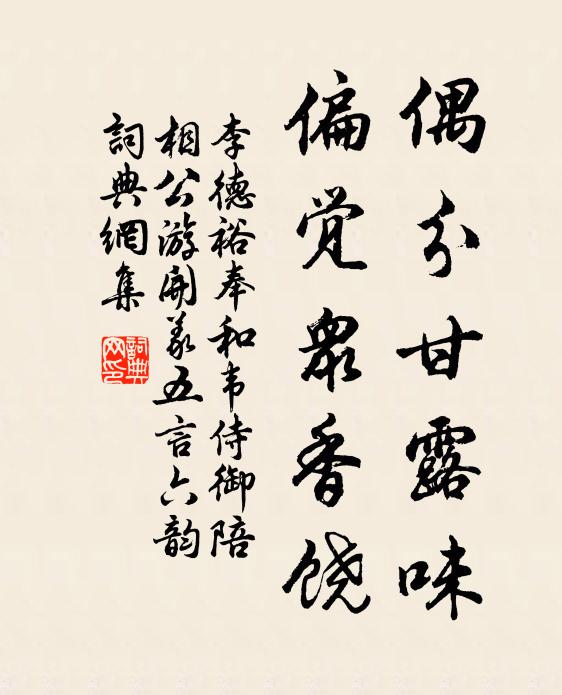 偶分甘露味
偏觉众香饶
李德裕奉和韦侍御陪
相公游开义五言六韵
詞典網集
詞典网印